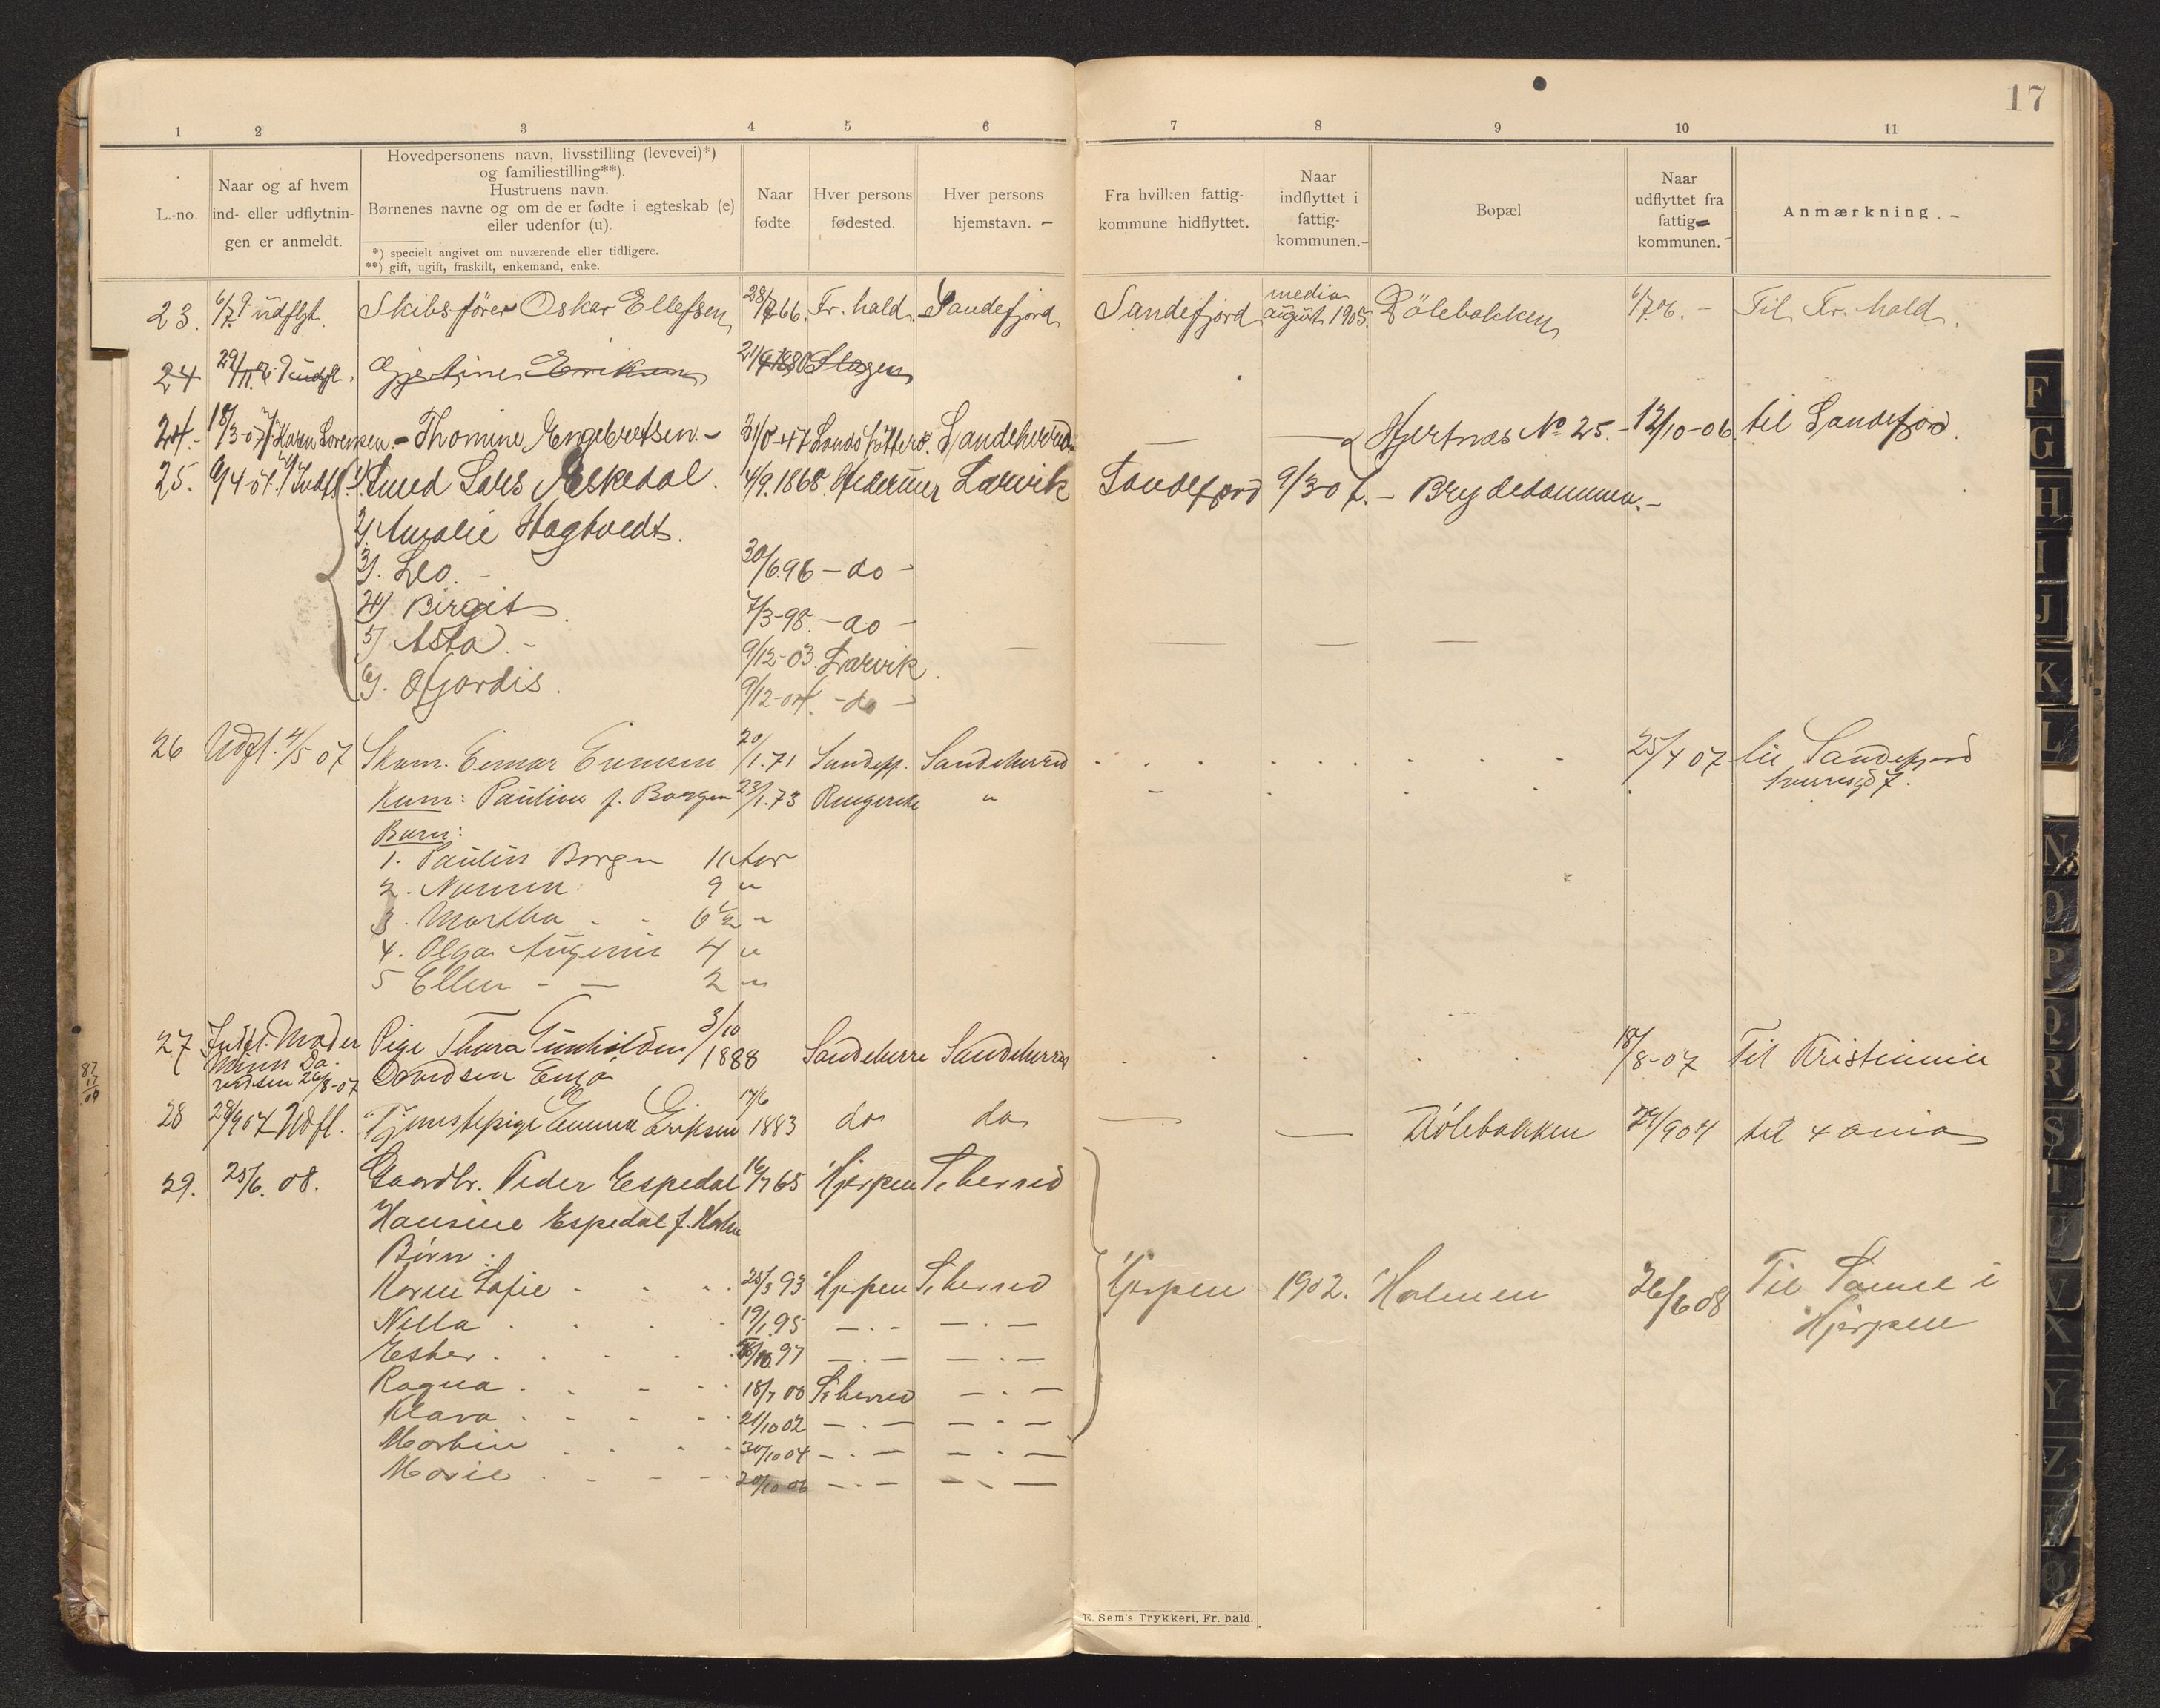 17
1 2 3 4 5 6 7 8 9 10 11
L.-no.
Naar og af hvem ind- eller udflytnin-gen er anmeldt.
Hovedpersonens navn, livsstilling (levevei)*)
og familiestilling**).
Hustruens navn.
Børnenes navne og om de er fødte i egteskab (e)
eller udenfor (u).
*) specielt angivet om nuværende eller tidligere.
**) gift, ugift, fraskilt, enkemand, enke.
Naar fødte.
Hver persons fødested.
Hver persons hjemstavn. -
Fra hvilken fattig-kommune hidflyttet.
Naar indflyttet i fattig-kommunen.-
Bopæl
Naar udflyttet fra fattig-kommunen.-
Anmærkning. -
23. 6/7. udflyt. Skibsfører Oskar Ellefsen 28/7 66. Fr.hald. Sandefjord Sandefjord media august 1905. Dölebakken 6/7.06. - Til Fr.hald.
24 29/11 Gjertine Eriksen 1880 Slagen
24.- 18/3-07 Karen Lorensen.- Thomine Engebretsen.- 31/8-47 Sandeherred. — — Hjertnæs No 25.- 12/10-06 til Sandefjord.
25. 9/4 07. Indfl. 1). Lars Eskedal. 4/9.1868. Hedrum Larvik Sandefjord 9/3 07.- Brydedammen.-
2). Amalie Hagtvedt.
3). Leo. - 30/6.96 - do -
4) Birgit. 7/3-98. - do -
5) Asta. - 9/12-03. Larvik. — — — —
6). Hjordis. 9/12-04. - do -
26 Udfl. 4/5 07 Skom. Einar Evensen 20/1.71 Sandefj. Sandeherred 25/4 07 til Sandefjord
Kone: Pauline f. Borgen 23/1.73 Ringerike "
Barn:
1. Paulus Borgen 11 Aar
2. Nanna 9 "
3. Martha - - 6½ "
4. Olga Augenie 4 "
5 Ellen - — 2 "
27 Indfl. Moder Pige Thora Gunhilda 3/10 1888 Sandeherre Sandeherre 18/8-07 Til Kristiania
Davidsen 26/8-07 Davidsen Enga
87
17
04
28 28/9 07 Udfl. Tjenestepige Emma Eriksen 17/6 1883 do do — — Dölebakken 29/9 07 til Xania
29. 25/6. 08. Gaardbr. Peder Espedal 16/7 65 Hjerpen S.herred
Hansine Espedal f. Holm
Börn:
Karen Sofie - - - 25/3 93 Hjerpen S.herred Hjerpen 1902. Holmen 26/6 08 Til Samme i
Nella . . . . 19/1.95 —.— —.— Hjerpen
Ester . . . . 97 —.— —.—
Ragna . . - . 18/7 00 S.herred —.—
Klara . - - - 21/10 02 —.— —.—
Martin . . . . 30/10 04 —.— —.—
Marie . - - - 20/10 06 —.— —.—
E. Sem's Trykkeri, Fr. hald.
F
G
H
I
J
K
L
N
O
P
Q
R
S
T
U
V
X
Y
Z
Ø